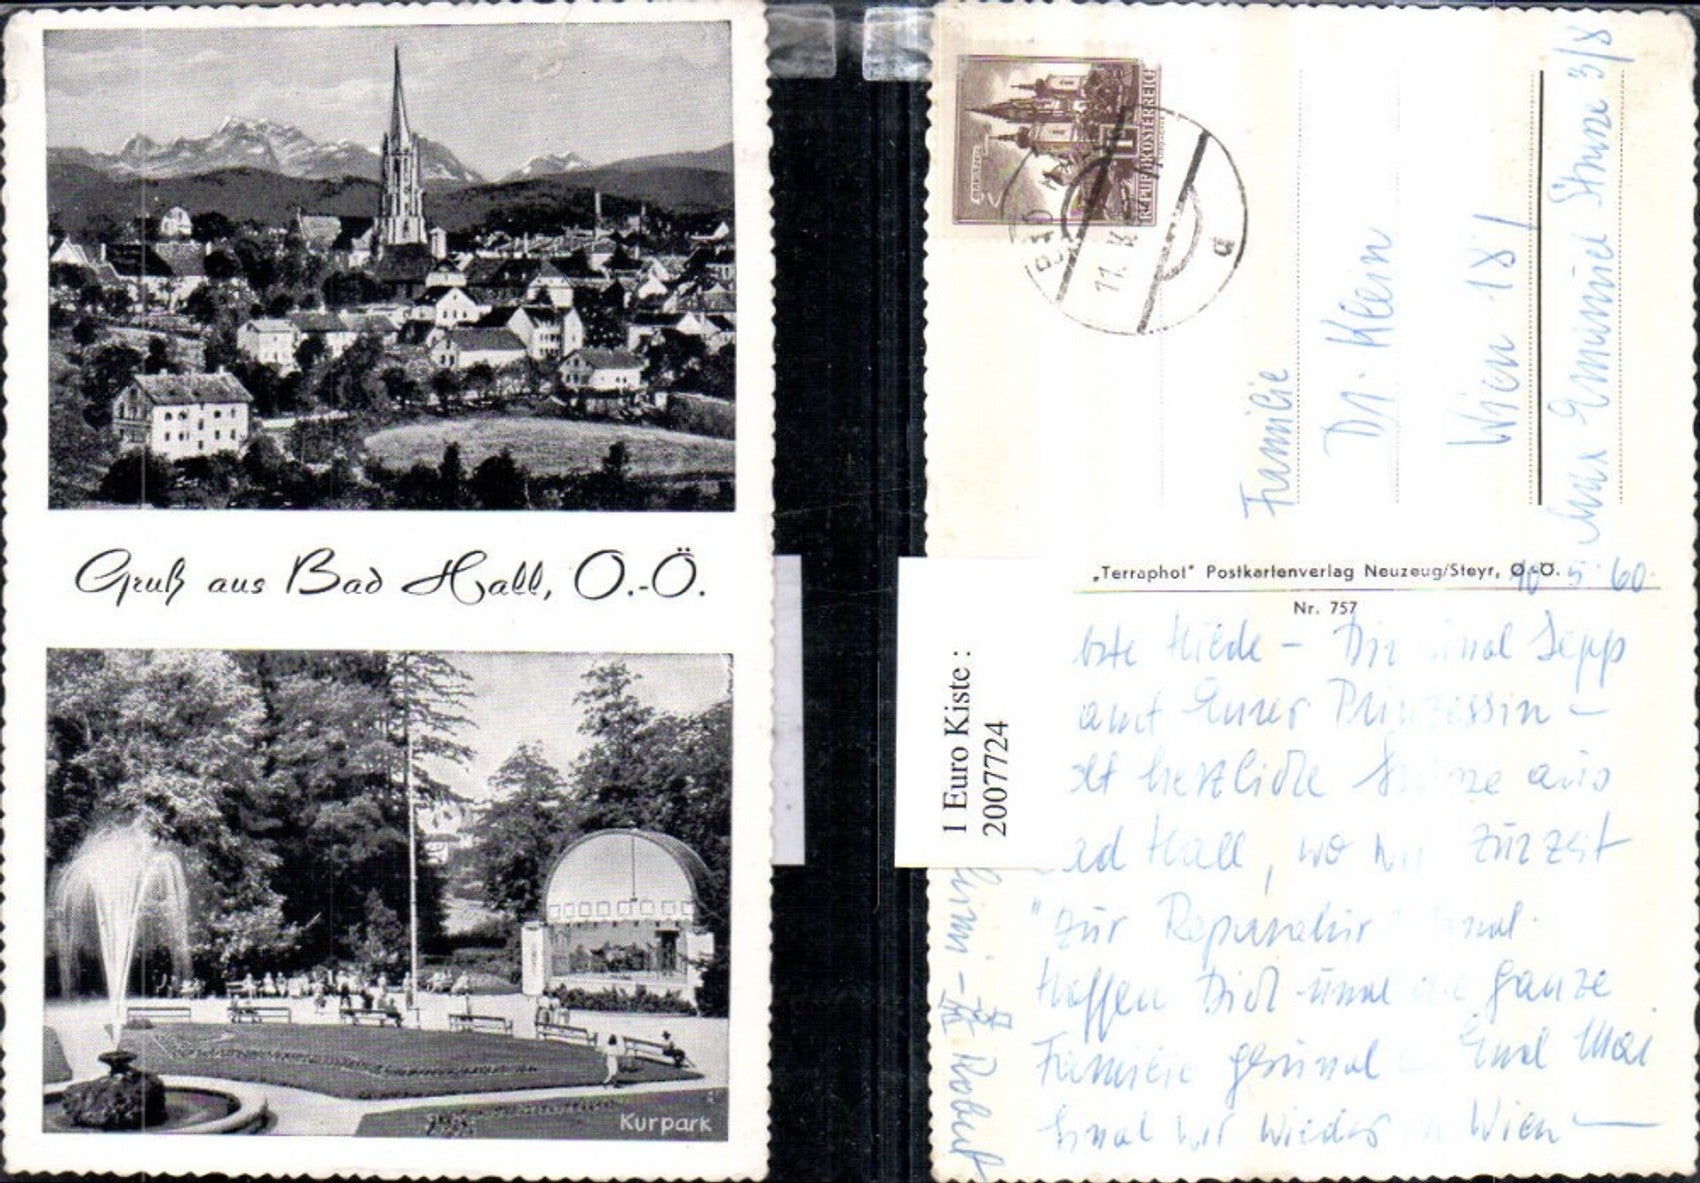 Gruß aus Bad Hall, O.-Ö.
Kurpark
1 Euro Kiste :
2007724
REPUBLIK ÖSTERREICH
BAD
11.
a
Familie
Dr. Klein
Wien 18/
Max Emanuel Strasse 3/8
„Terraphot" Postkartenverlag Neuzeug/Steyr, O.-Ö.
Nr. 757
10 5. 60.
Hilde – Dir und Sepp
samt Eurer Prinzessin –
herzliche Grüsse aus
Bad Hall, wo wir zurzeit
"zur Reparatur" sind.
Hoffen Dich und die ganze
Familie gesund – End Mai
sind wir wieder in Wien –
Robert